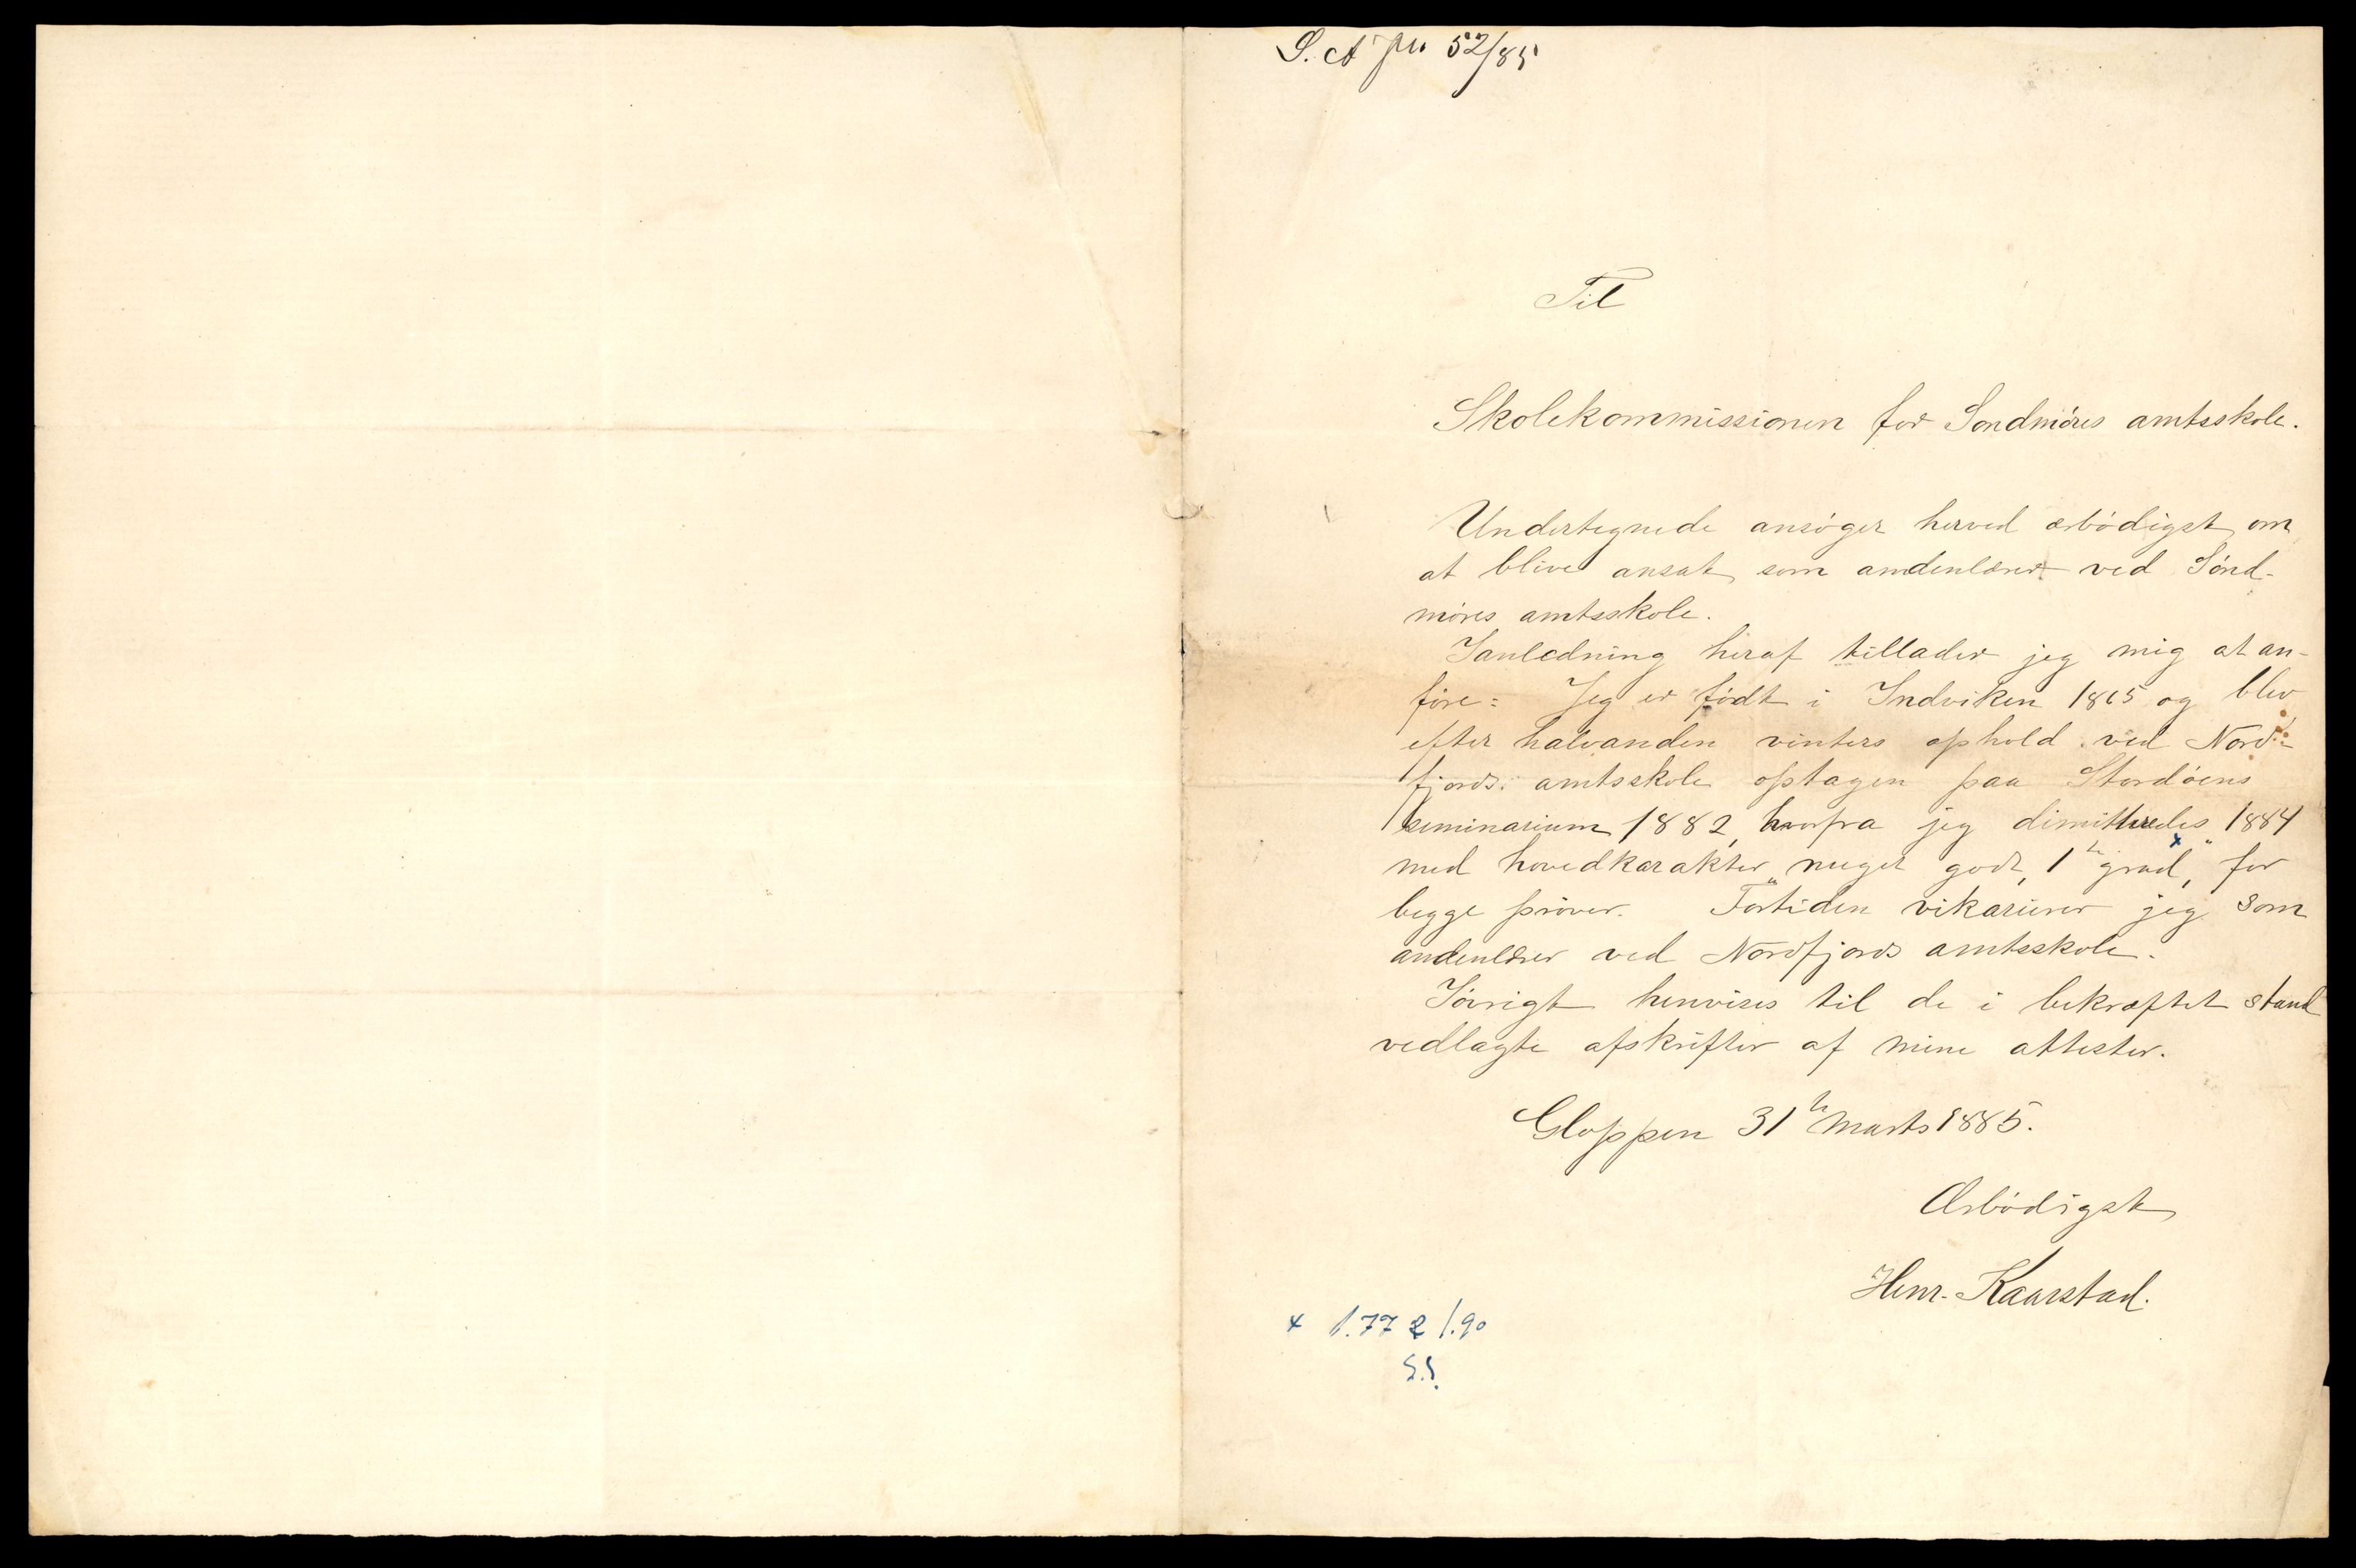 S. A jrn 52/85
Til
Skolekommissionen for Söndmöres amtsskole.
Undertegnede ansöger herved ærbödigst om
at blive ansat som andenlærer ved Sönd-
möres amtsskole.
Ianledning heraf tillader jeg mig at an-
före: Jeg er födt i Indviken 1865 og blev
efter halvanden vinters ophold ved Nord-
fjords amtsskole optagen paa Stordöens
seminarium 1882, hvorfra jeg dimitteredes 1884
med hovedkarakter „meget godt, 1ste grad“, x for
begge pröver. Fortiden vikarierer jeg som
andenlærer ved Nordfjords amtsskole.
Iövrigt henvises til de i bekræftet stand
vedlagte afskrifter af mine attester.
Gloppen 31te Marts 1885.
Ærbödigst
Henr. Kaarstad.
x 1.77 & 1.90
S.S.